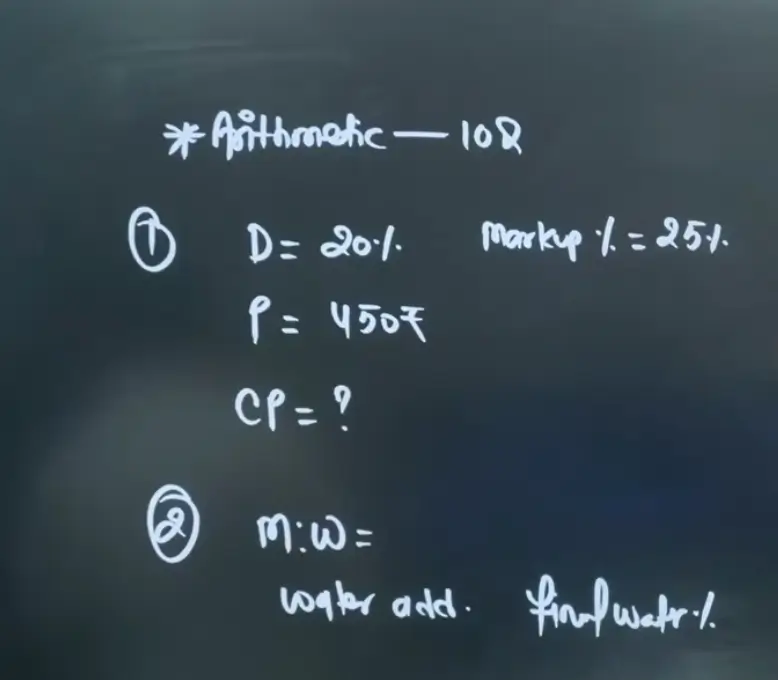 * Arithmetic — 10Q
① D = 20% Markup % = 25%
P = 450₹
CP = ?
② M:W =
water add. final water %